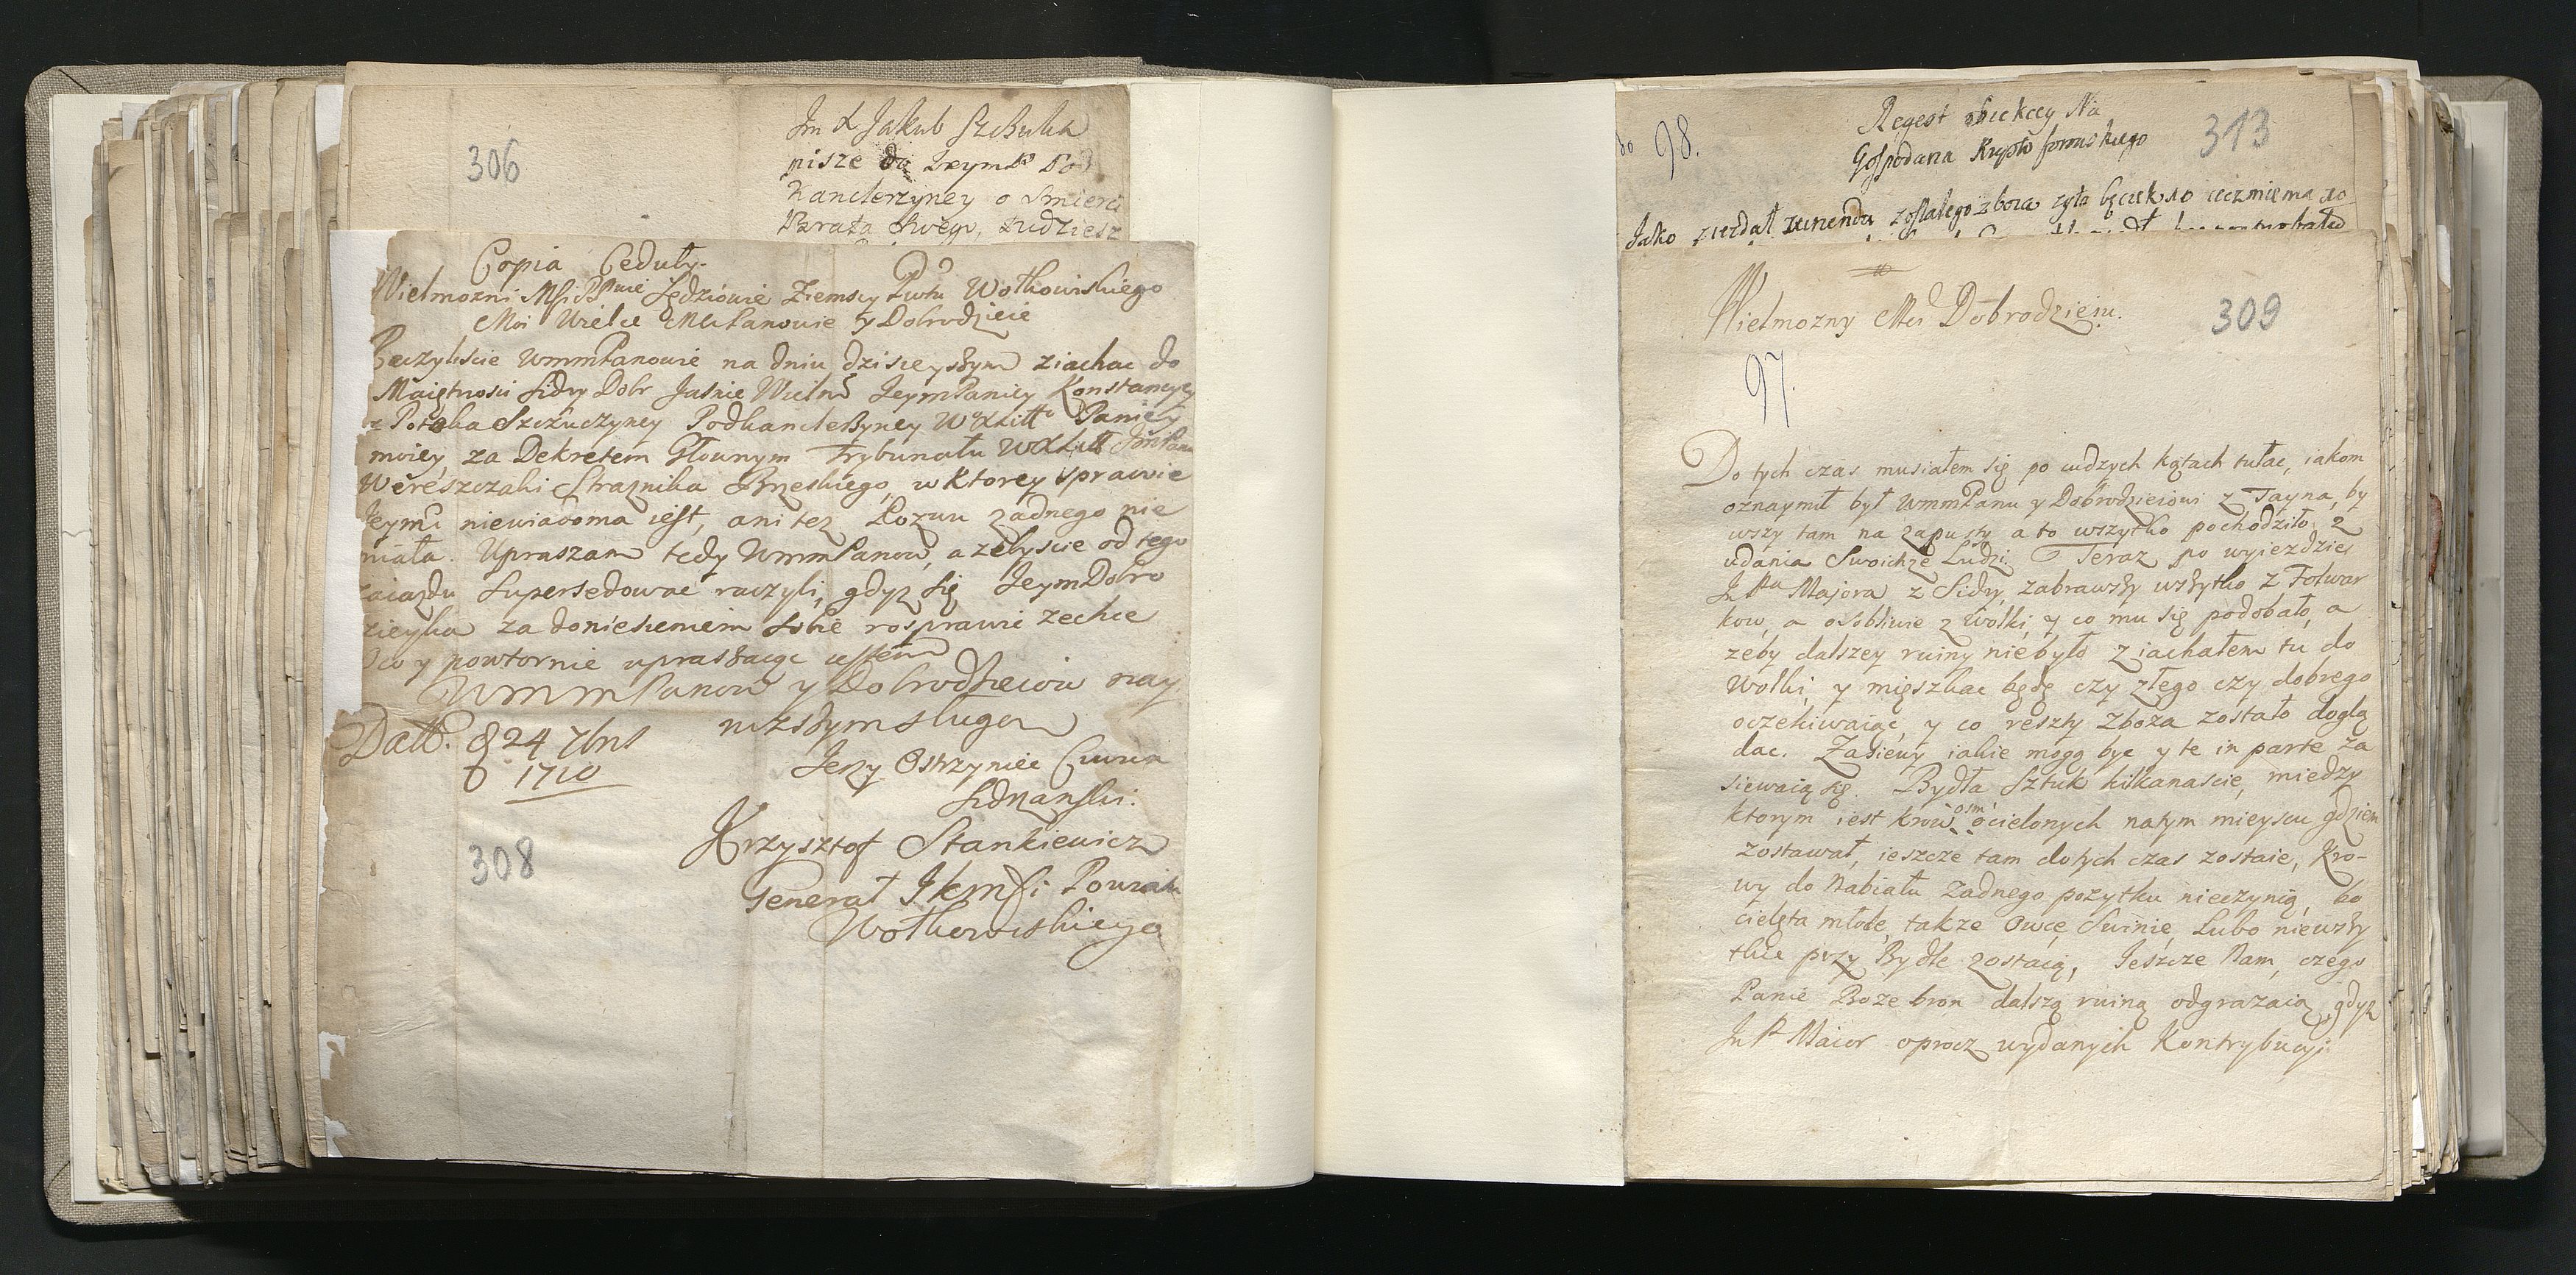 306
Jm X Jakub Szkulth
pisze do Jeym Pod
Kanclerzyney o Smierci
Brata Swego, tudziesz
Copia Ceduły.
Wielmozni Sędziowie Ziemscy Pwtu Wołkowiskiego
Moi Wielce Panowie y Dobrodzieie
Raczyliście WmmPanowie na dniu dzisieyszym ziachac do
Maiętnosci Sidry Dobr Jaśnie JeymPaniey Konstancyey
z Potoka Szczuczyney Podkanclerzyney WXLitto Paniey
moiey, za Dekretem Głownym Trybunału
Wereszczaki Straznika Brzeskiego, w ktorey sprawie
Jeymć niewiadoma iest, ani tez Pozwu zadnego nie
miała. Upraszam tedy WmmPanow, azebyscie od tego
zaiazdu Supersedowac raczyli, gdyz się Jeym Dobro
zieyka za doniesieniem sobie rosprawić zechce
O co y powtornie upraszaiąc iestem
WmmPanow y Dobrodzieiow nay
Datt. 24 7bris nizszym sługą
1710 Jerzy Ostrzyniec Ciwun
Sidrzanski.
Krzysztof Stankiewicz
Generał Jkmsci Powiatu
Wołkowiskiego
308
98.
Regest Na
Gospodarza
313
Jako zostałego zboza zyta beczek 10 ięczmiema
Wielmozny Mci Dobrodzieiu.
309
97.
Do tych czas musiałem się po cudzych kątach tułac, iakom
oznaymił był WmmPanu y Dobrodzieiowi z Tayna, by
wszy tam na zapusty a to wszytko pochodziło z
udania Swoichze Ludzi. Teraz po wyiezdzie
Jm Pa Majora z Sidry, zabrawszy wszytko z Folwar
kow, a osobliwie z Wolki, y co mu się podobało, a
zeby dalszey ruiny niebyło ziachałem tu do
Wolki, y mięszkac będę czy złego czy dobrego
oczekiwaiąc, y co reszty zboza zostało doglą
dac. Zasiewy iakie mogą byc y te in parte za
siewaią się. Bydła Sztuk kilkanascie, miedzy
ktorym iest krow osm ocielonych natym mieyscu gdziem
zostawał, ieszcze tam dotych czas zostaie, Kro-
wy do Nabiału zadnego pozytku nieczynią, bo
cielęta młode, takze Owce, Swinie, Lubo niewszy
tkie przy Bydle zostaią, Ieszcze Nam, czego
Panie Boze bron dalszą ruiną odgrazaią, gdyz
Jm P Maior oprocz wydanych Kontrybucyi